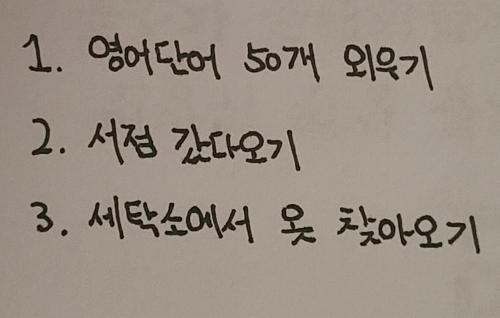 1. 영어단어 50개 외우기
2. 서점 갔다오기
3. 세탁소에서 옷 찾아오기